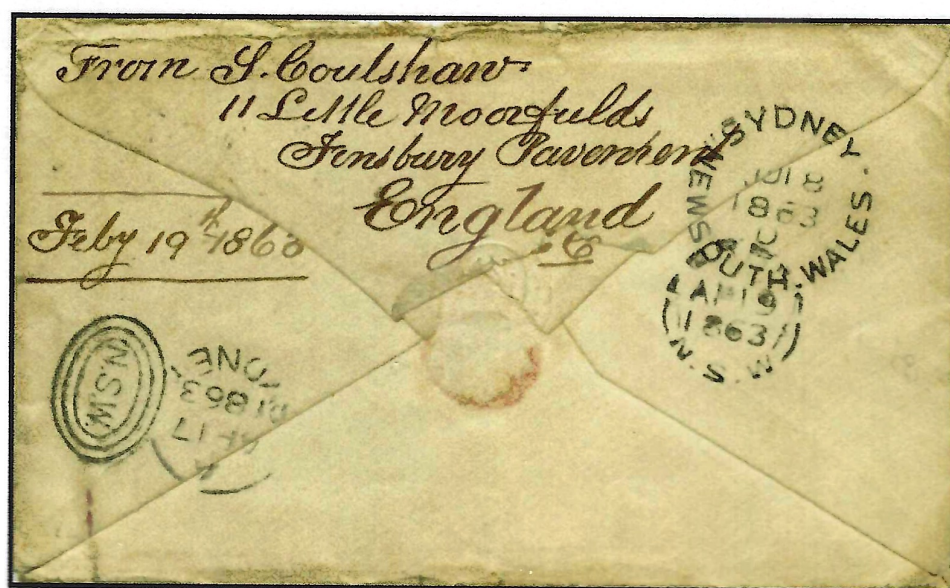 From S. Coulshaw
11 Little Moorfields
Finsbury Pavement
England
Feby 19th 1863
SYDNEY.
1863
NEW SOUTH.WALES.
AP 19
1863
N.S.W
N.S.W.
AP 17
1863